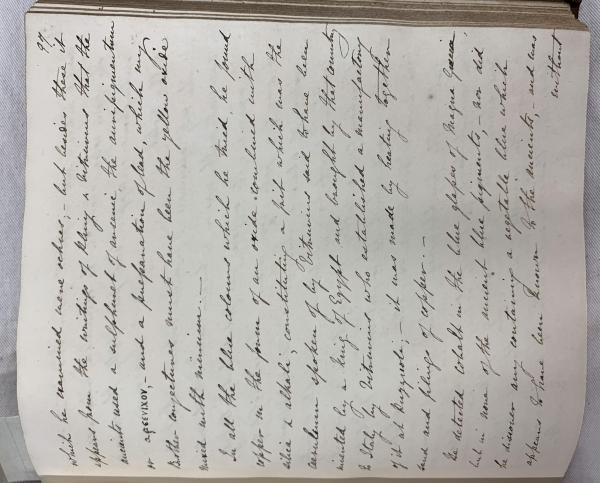 97.
which he examined were ochres; – but besides these it
appears from the writings of Pliny & Vitruvius that the
ancients used a sulphuret of arsenic the auripigmentum
or αρσενιχον, – and a preparation of lead, which my
Brother conjectures must have been the yellow oxide
mixed with minium. —
In all the blue colours which he tried, he found
copper in the form of an oxide combined with
silica & alkali, constituting a frit which was the
caeruleum spoken of by Vitruvius said to have been
invented by a King of Egypt and brought by that country
to Italy by Vitruvius who established a manufactory
of it at Puzzuoli; – it was made by heating together
sand and filings of copper. —
He detected cobalt in the blue glasses of Magna Grecia
but in none of the ancient blue pigments, – nor did
he discover any containing a vegetable blue which
appears to have been known to the ancients, – and was
without